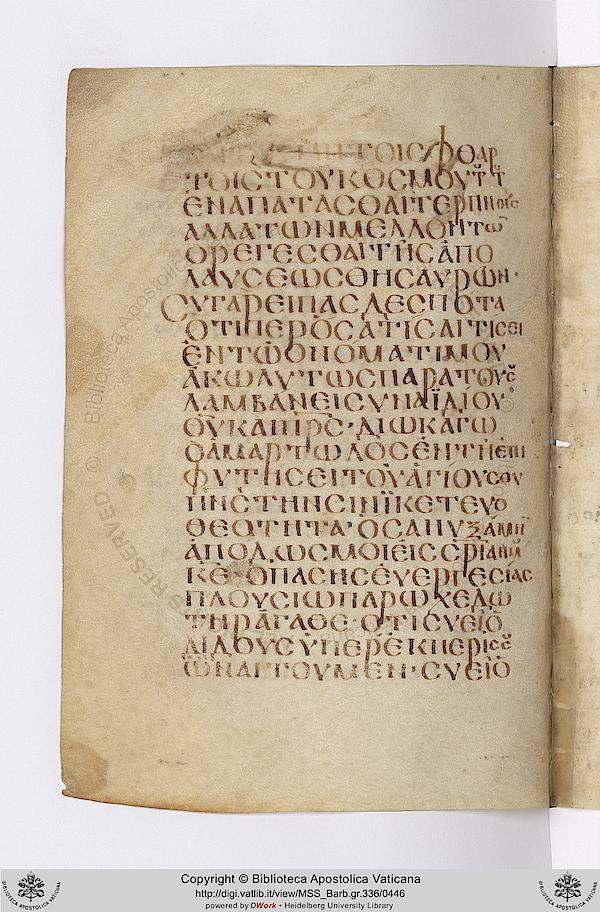 ΤΟΙϹ ΦΘΑΡ
ΤΟΙϹ ΤΟΥ ΚΟϹΜΟΥ Τ̆ Τ̆
ΕΝΑΠΑΤΑϹΘΑΙ ΤΕΡΠΝΟΙϹ
ΑΛΛΑ ΤΩΝ ΜΕΛΛΟΝΤΩ̅
ΟΡΕΓΕϹΘΑΙ ΤΗϹ ΑΠΟ
ΛΑΥϹΕΩϹ ΘΗϹΑΥΡΩΝ·
ϹΥ ΓΑΡ ΕΙΠΑϹ ΔΕϹΠΟΤΑ
ΟΤΙΠΕΡ ΟϹΑ ΤΙϹ ΑΙΤΙϹΕΙ
ΕΝ ΤΩ ΟΝΟΜΑΤΙ ΜΟΥ
ΑΚΩΛΥΤΩϹ ΠΑΡΑ ΤΟΥ Ϲ̆
ΛΑΜΒΑΝΕΙ ϹΥΝΑΪΔΙΟΥ
Θ̅Υ̅ ΚΑΙ Π̅Ρ̅Ϲ̅· ΔΙΩ ΚΑΓΩ
Ο ΑΜΑΡΤΩΛΟϹ ΕΝ ΤΗ ΕΠΙ
ΦΥΤΗϹΕΙ ΤΟΥ ΑΓΙΟΥ ϹΟΥ
Π̅Ν̅Ϲ̅ ΤΗΝ ϹΗΝ ΪΚΕΤΕΥΟ
ΘΕΩΤΗΤΑ· ΟϹΑ ΗΥΞΑΜΗ̅
ΑΠΟΔΩϹ ΜΟΙ ΕΙϹ Ϲ̅Ρ̅Ι̅ΑΝ
Κ̅Ε̅ Ο ΠΑϹΗϹ ΕΥΕΡΓΕϹΙΑϹ
ΠΛΟΥϹΙΩ ΠΑΡΩΧΕ ΔΩ
ΤΗΡ ΑΓΑΘΕ· ΟΤΙ ϹΥ ΕΙ Ο
ΔΙΔΟΥϹ ΥΠΕΡΕΚΠΕΡΙϹϹ̆
ΩΝ ΑΙΤΟΥΜΕΝ· ϹΥ ΕΙ Ο
© Biblioteca Apostolica
RESERVED
Copyright © Biblioteca Apostolica Vaticana
http://digi.vatlib.it/view/MSS_Barb.gr.336/0446
powered by DWork - Heidelberg University Library